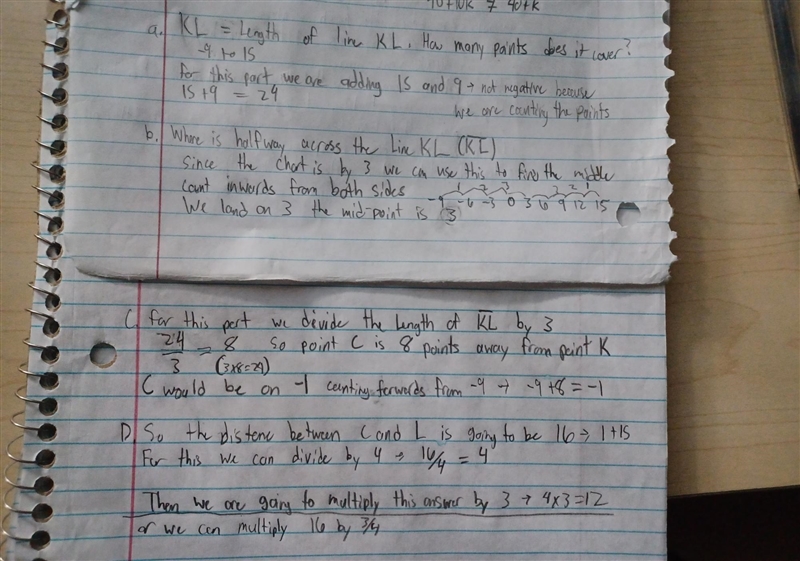 40+10k ≠ 40+k
a. KL = Length of line KL. How many points does it cover?
-9 to 15
For this part we are adding 15 and 9 → not negative because
15+9 = 24 we are counting the points
b. Where is halfway across the Line KL (KL)
Since the chart is by 3 we can use this to find the middle
Count inwards from both sides
1 2 3 3 2 1
-9 -6 -3 0 3 6 9 12 15
We land on 3 the mid-point is (3)
C. For this part we devide the length of KL by 3
24/3 = 8 So point C is 8 points away from point K
(3x8=24)
C would be on -1 counting forwards from -9 → -9+8=-1
D. So the distenc between C and L is going to be 16 → 1+15
For this we can divide by 4 → 16/4 = 4
Then we are going to multiply this answer by 3 → 4x3=12
or we can multiply 16 by 3/4